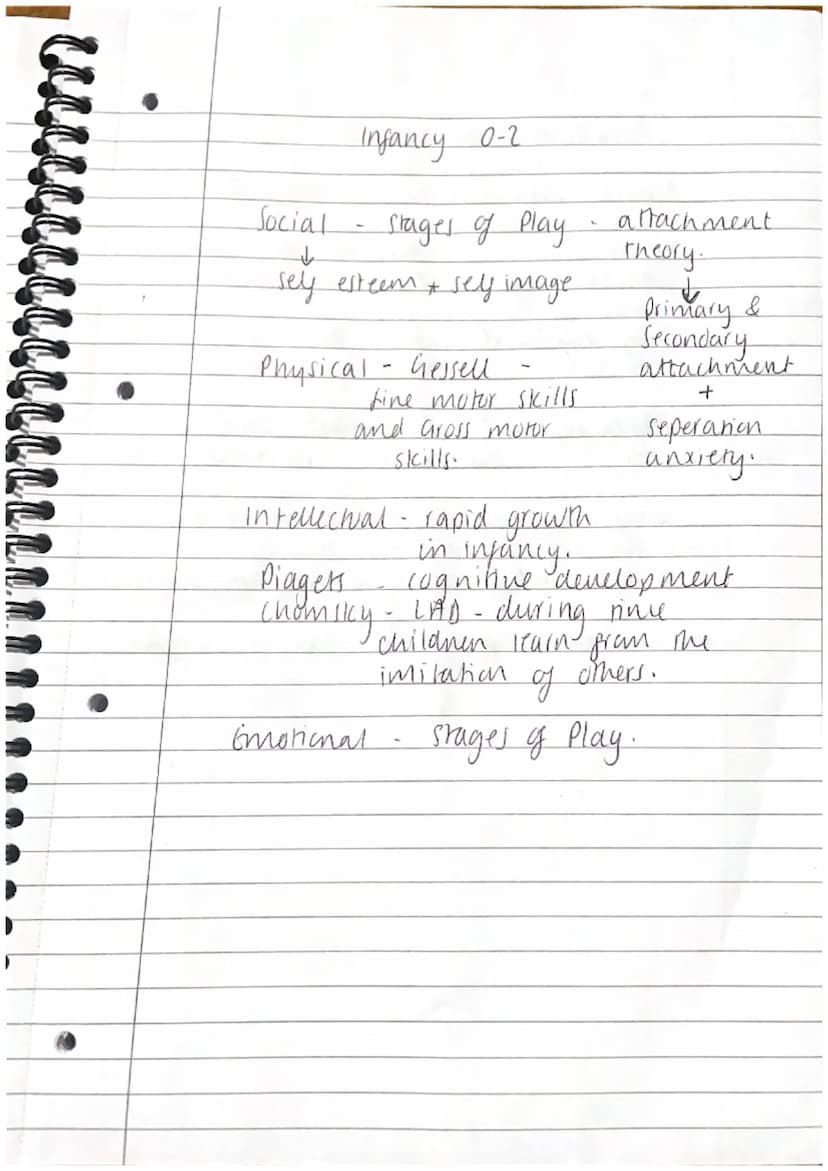 Infancy 0-2
Social - Stages of Play - attachment
theory.
↓
self esteem + self image
↓
primary &
Secondary
attachment
+
seperation
anxiety.
Physical - Gessell -
fine motor skills
and Gross motor
skills.
Intellectual - rapid growth
in infancy.
Piagets - cognitive development
Chomsky - LAD - during
children learn from the
imitation of others.
Emotional - Stages of Play.